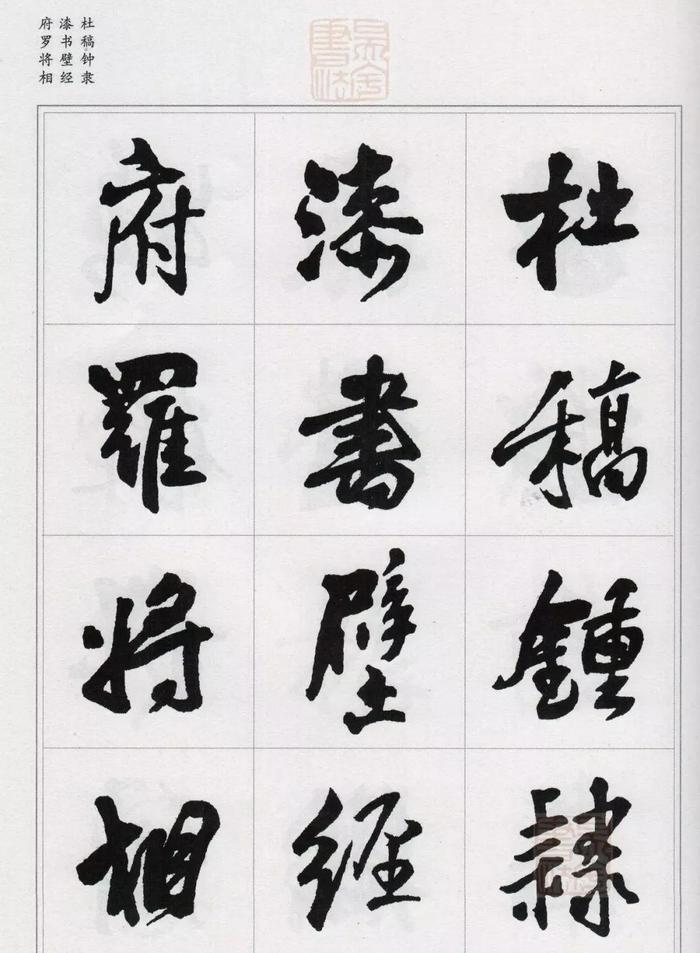 杜稿钟隶
漆书壁经
府罗将相
杜稿鍾隸
漆書壁經
府羅將相